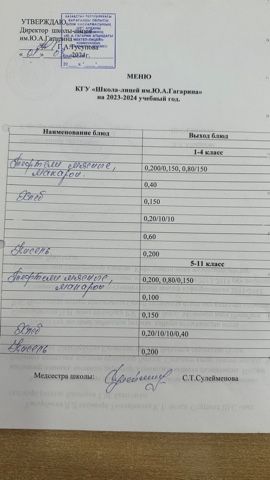 УТВЕРЖДАЮ
Директор школы-лицей
им.Ю.А.Гагарина
Г.А.Тусупова
2024г.
МЕНЮ
КГУ «Школа-лицей им.Ю.А.Гагарина»
на 2023-2024 учебный год.
Наименование блюд Выход блюд
1-4 класс
Тефтели мясные, 0,200/0,150, 0,80/150
макарон
0,40
Хлеб 0,150
0,20/10/10
0,60
Кисель 0,200
5-11 класс
Тефтели мясные, 0,200, 0,80/0,150
макарон
0,100
0,150
Хлеб 0,20/10/10/0,40
Кисель 0,200
Медсестра школы: С.Т.Сулейменова